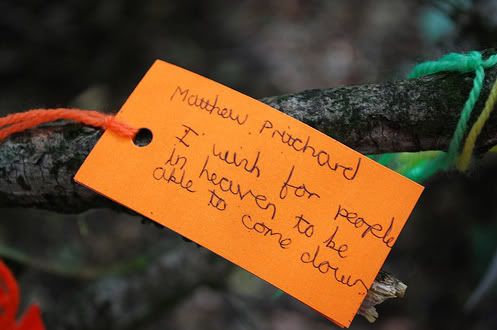 Matthew Pritchard
I wish for people
in heaven to be
able to come down